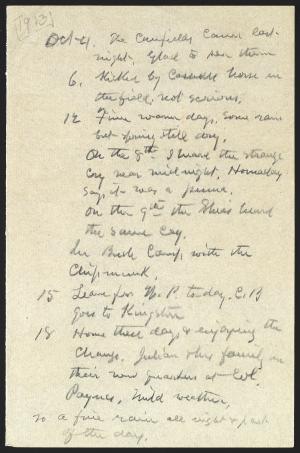 [1913]
Oct-4. The Canfields came last
night, Glad to see them
6. Kicked by Cassville horse in
the field, not serious,
12 Fine warm days, some rain
but spring still dry,
On the 8th I heard the strange
cry near midnight, Hornaday
says it was a puma.
On the 9th the Shias heard
the same cry.
In Bush Camp, with the
Chipmunk,
15 Leave for W. P. to-day. C. B
goes to Kingston
18 Home these days & enjoying the
change, Julian & his family in
their new quarters at Col.
Paynes, mild weather,
20 a fine rain all night & part
of the day.